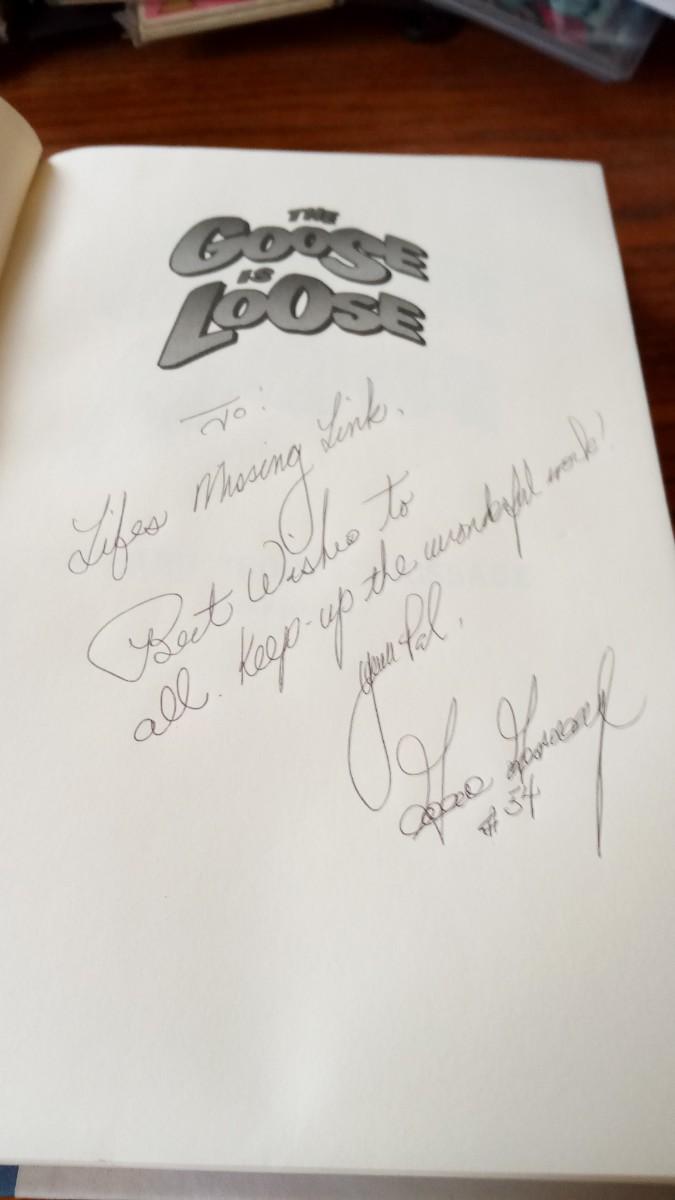 THE
GOOSE
IS
LOOSE
To:
Lifes Missing Link.
Best Wishes to
all. Keep-up the wonderful work!
your Pal,
Goose Gonsoulin
#